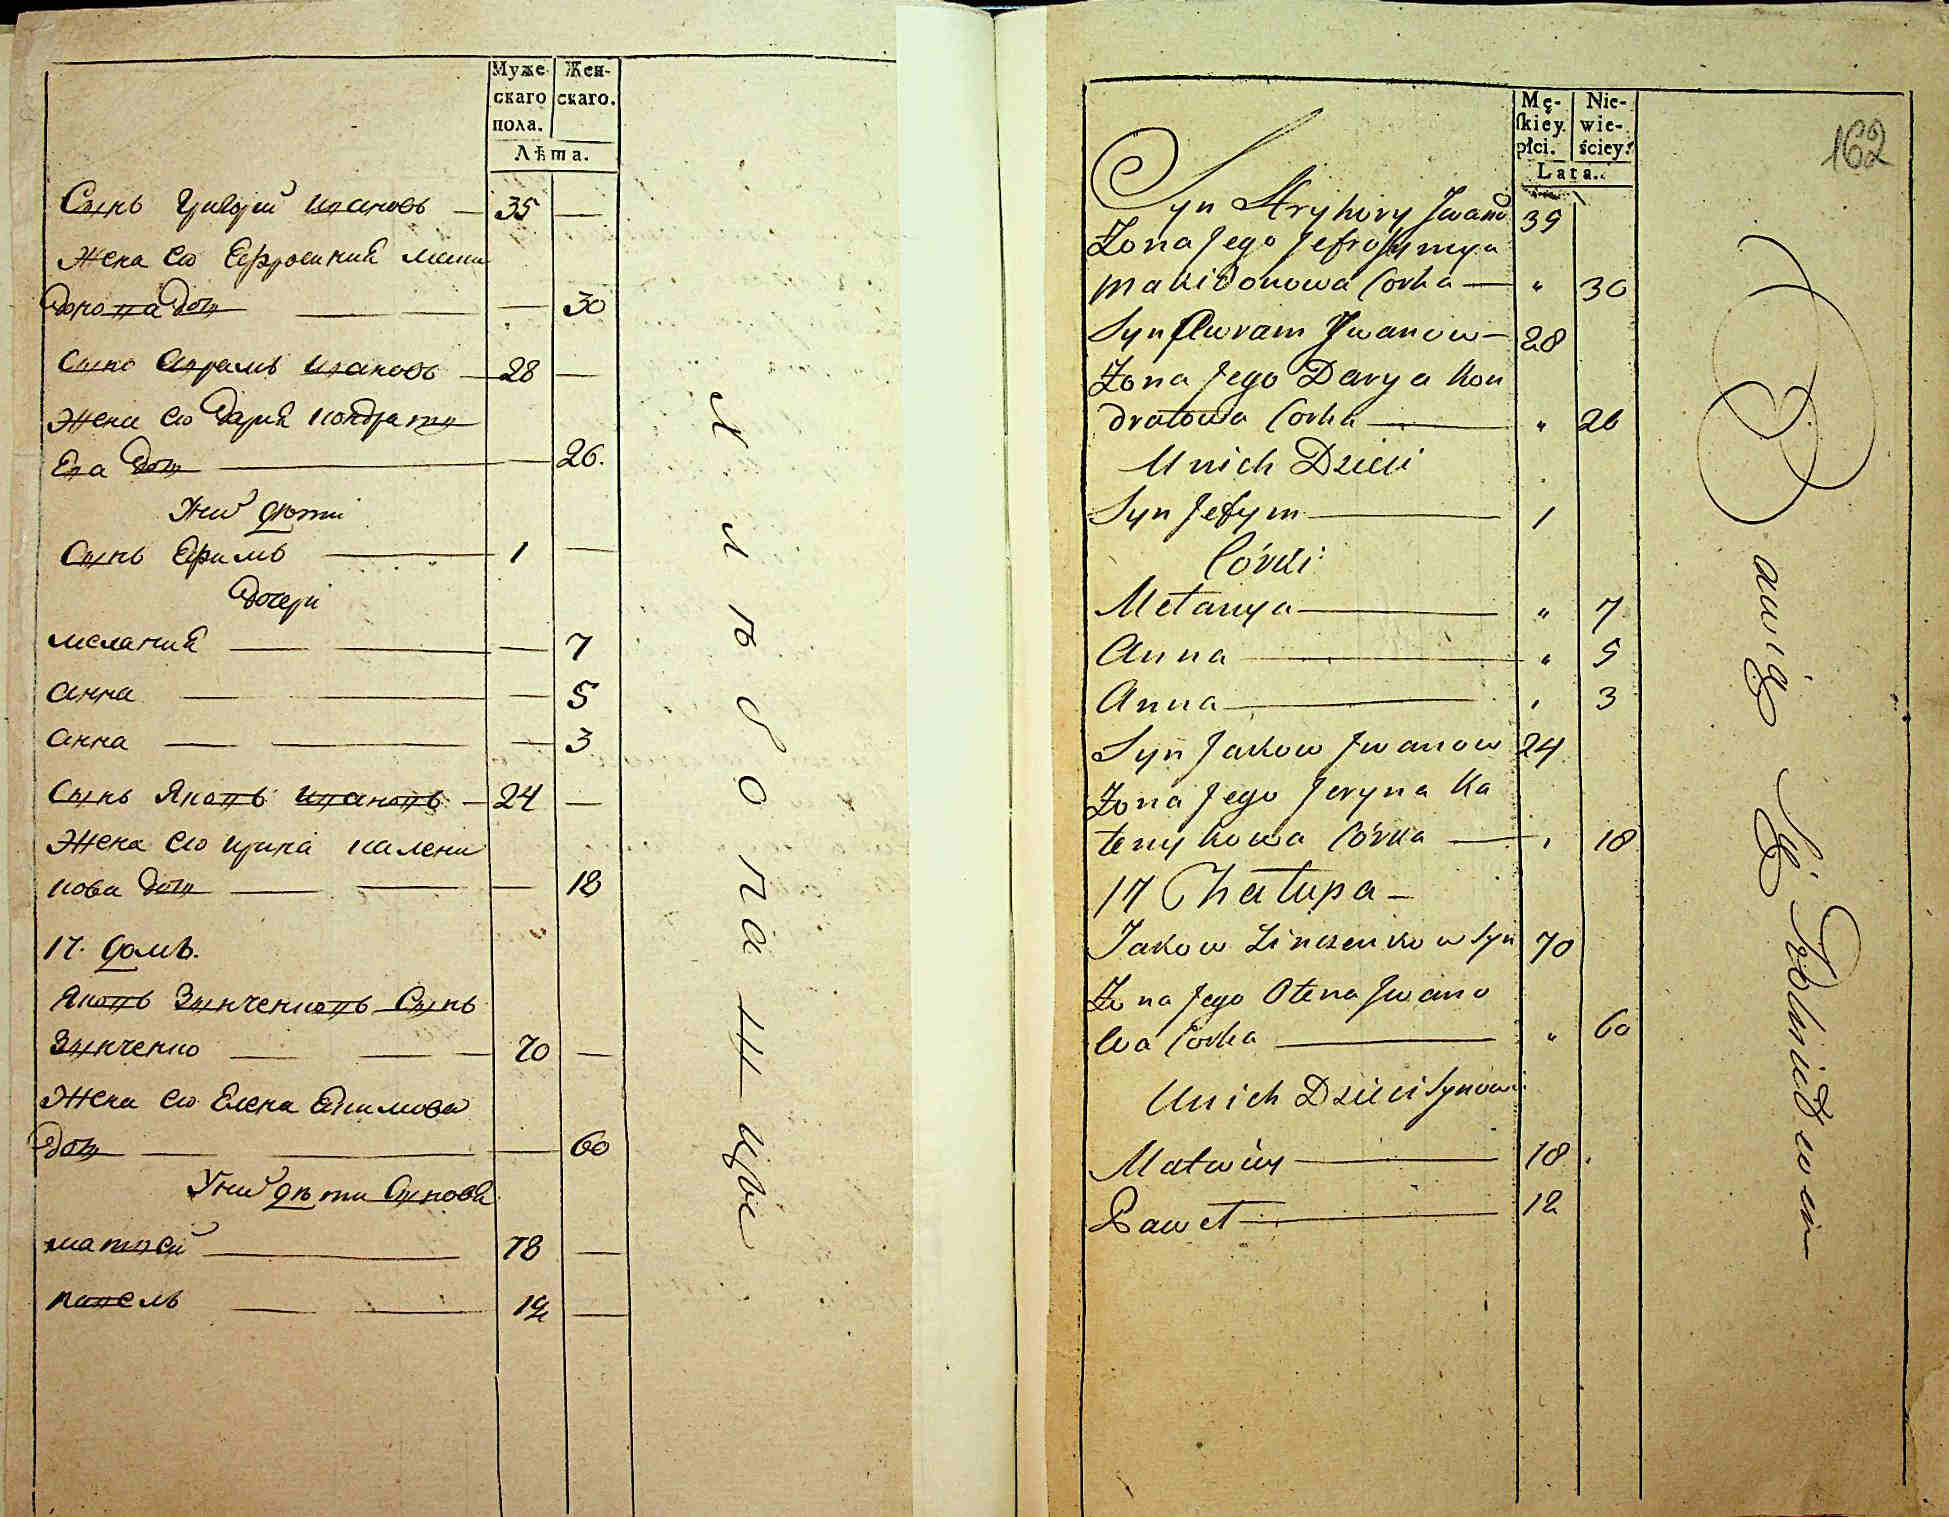 Муже- Жен-
скаго скаго.
пола.
Лѣта.
Сынъ Григорій Ивановъ — 35 —
Жена его Ефросиния Маки
донова дощ — — — — 30
Сынъ Аврамъ Ивановъ — 28 —
Жена его Дария Кондрать
Ева дощ — — 26.
У них дѣти
Сынъ Ефимъ — 1 —
Дочери
Мелания — — — 7
Анна — — — 5
Анна — — — 3
Сынъ Яковъ Ивановъ — 24 —
Жена его Ирина Калени
кова дощ — — — 18
17. Домъ.
Яковъ Зинченковъ Сынъ
Зинченко — — — 70 —
Жена его Елена Ефимова
дощ — — — 60
У них дѣти Сыновя
Матвей — 18 —
Павель — — 12 —
Хлѣбопашцы
162
Mę- Nie-
skiey wie-
płci. ściey.
Lata.
Syn Hryhory Jwanow 35
Żona Jego Jefrosynnya
Makidonowa Corka — " 30
Syn Awram Jwanow — 28
Żona Jego Darya Kon
dratowa Corka — " 26
U nich Dzieci
Syn Jefym — 1
Córki
Mełanya — " 7
Anna — " 5
Anna — " 3
Syn Jakow Jwanow 24
Żona Jego Jeryna Ka
lenykowa Córka — " 18
17 Chałupa —
Jakow Zinczenkow Syn 70
Żona Jego Ołena Jwano
wa Corka — " 60
U nich Dzieci Synowi
Matwiey — 18
Paweł — 12
Bawią się Rolnictwem